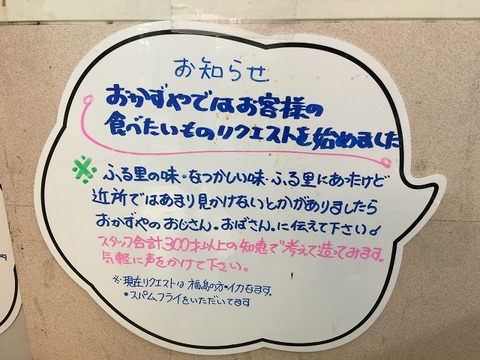 お知らせ
おかずやではお客様の
食べたいものリクエストを始めました
※ふる里の味・なつかしい味・ふる里にあったけど
近所ではあまり見かけないとかがありましたら
おかずやのおじさん。おばさん。に伝えて下さい♂
スタッフ合計300才以上の知恵で考えて造ってみます。
気軽に声をかけて下さい。
※現在リクエストは福島の方・イカもます。
・スパムフライをいただいてます